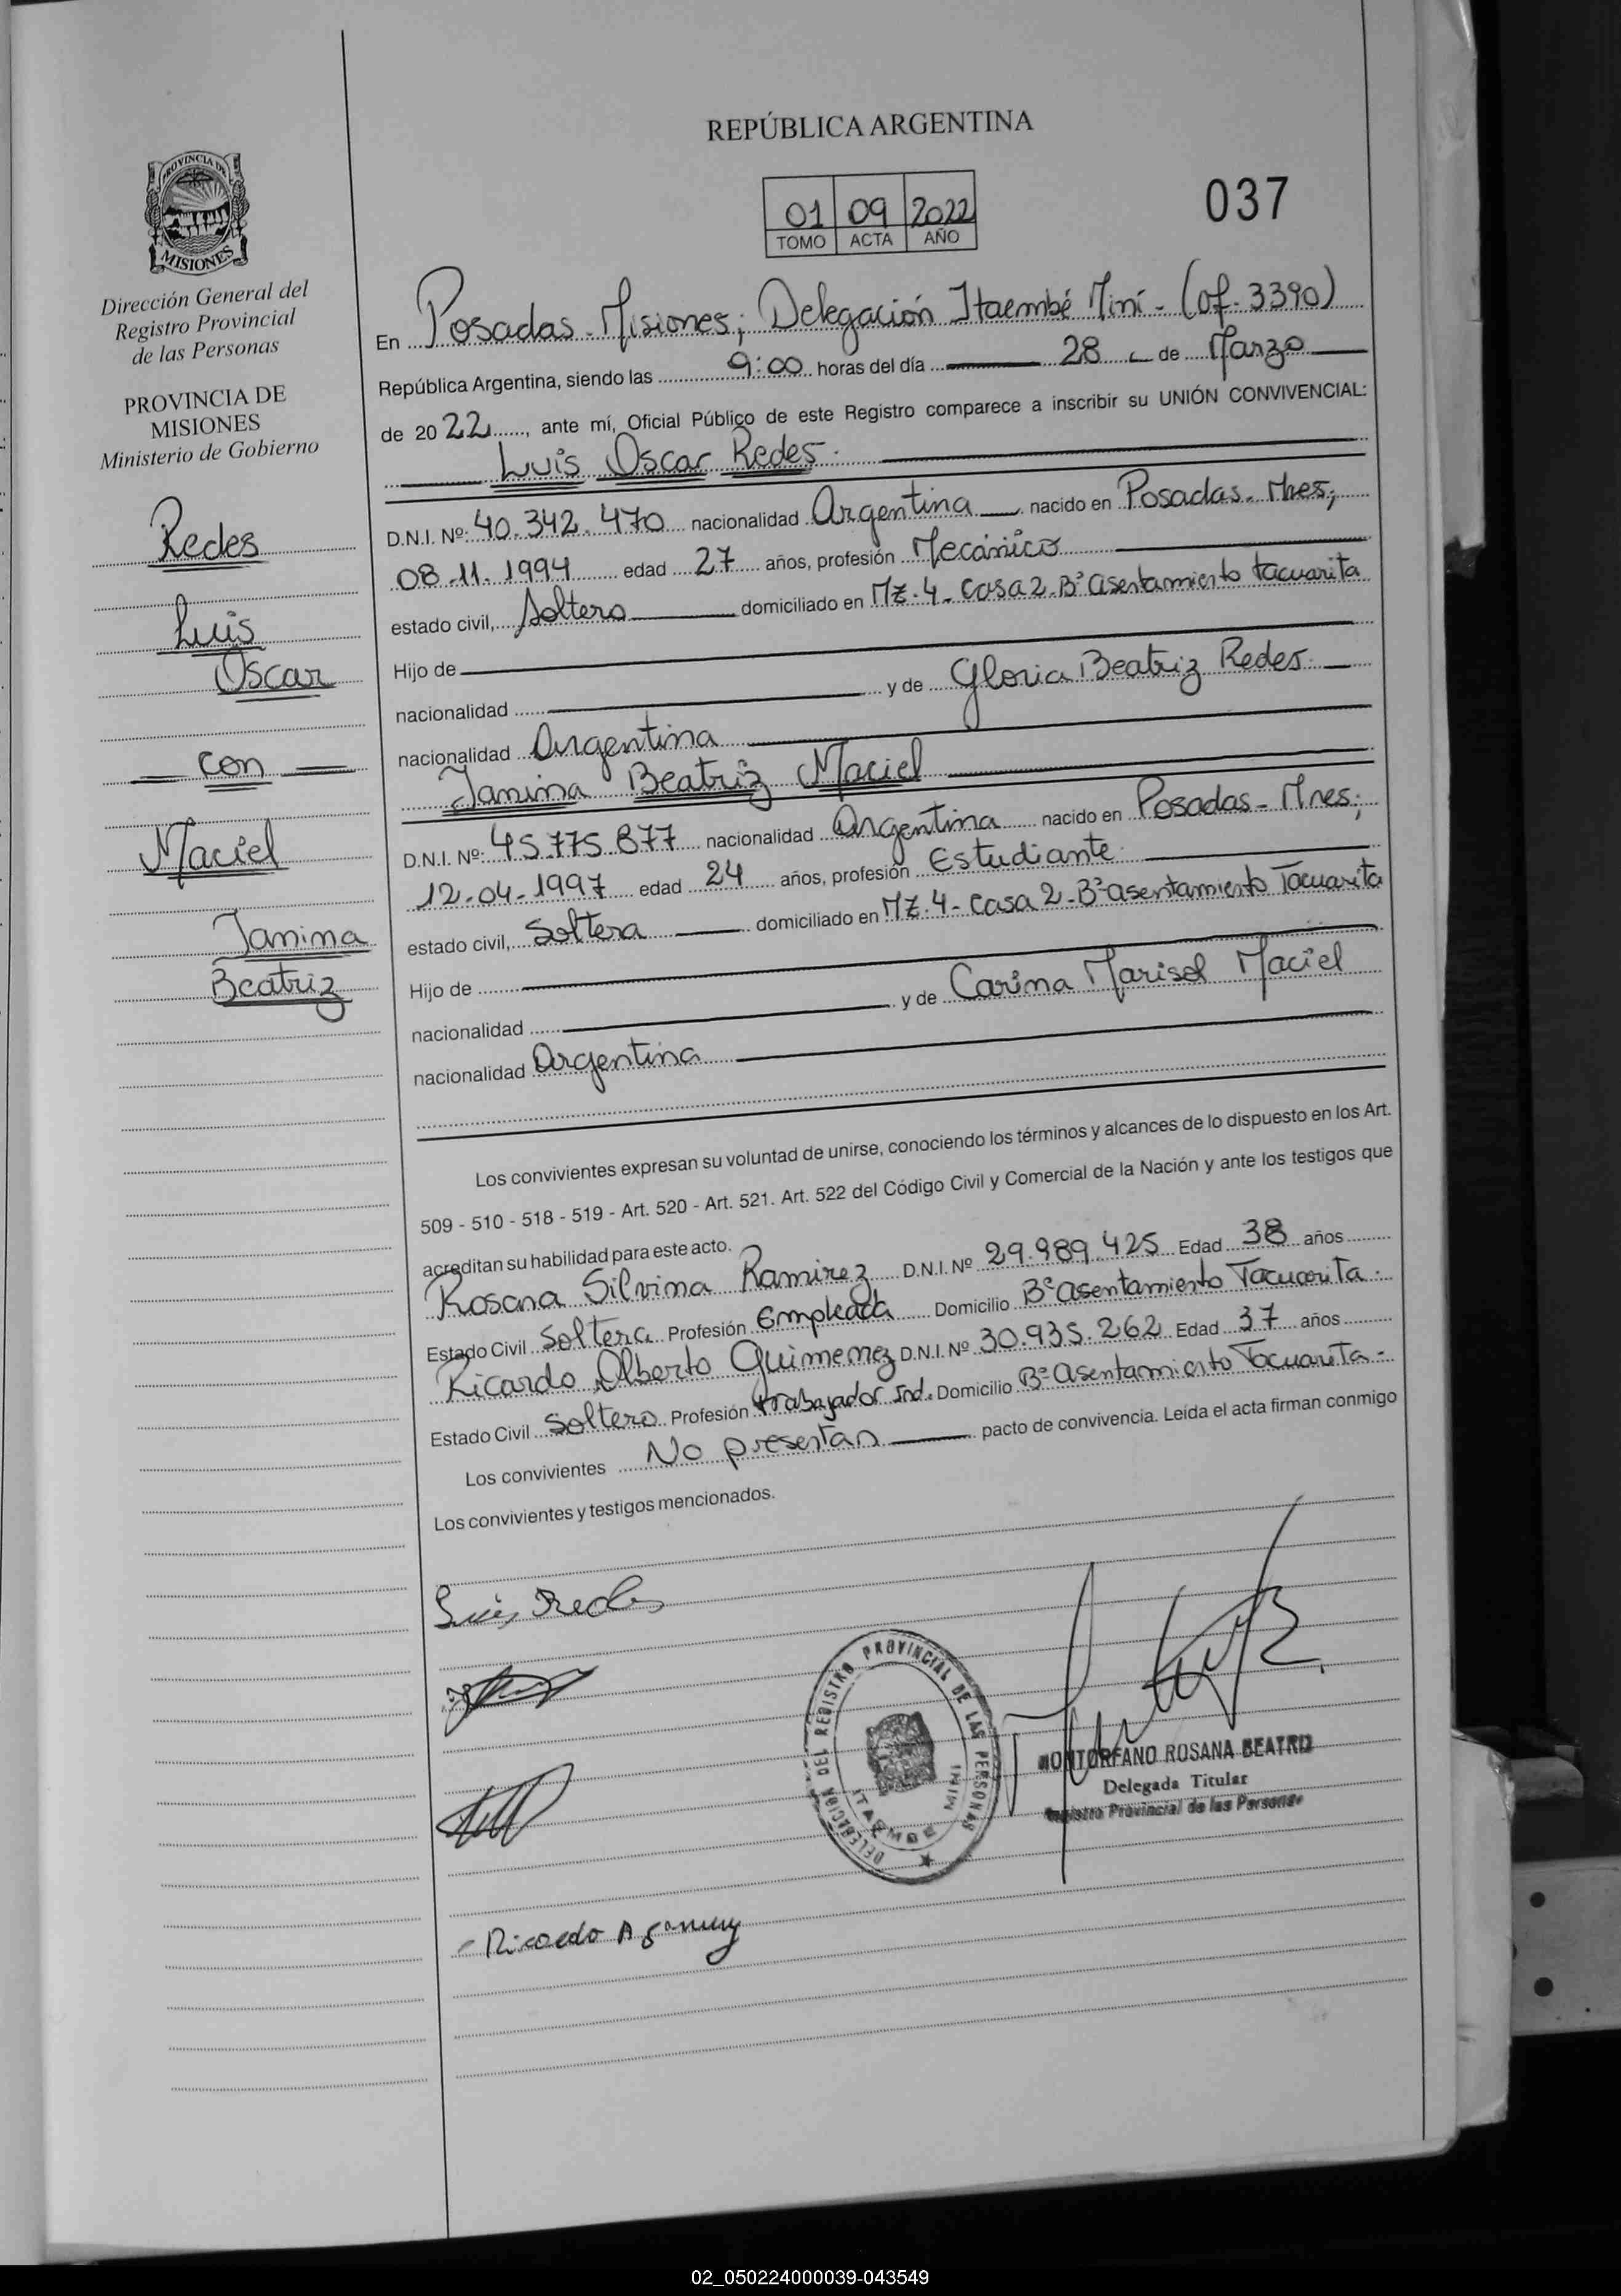 REPÚBLICA ARGENTINA
037
01 09 2022
TOMO ACTA AÑO
PROVINCIA DE
MISIONES
Dirección General del
Registro Provincial
de las Personas
PROVINCIA DE
MISIONES
Ministerio de Gobierno
Redes
Luis
Oscar
con
Maciel
Janina
Beatriz
En Posadas - Misiones; Delegación Itaembé Miní - (Of. 3390)
República Argentina, siendo las 9:00 horas del día 28 de Marzo
de 2022, ante mí, Oficial Público de este Registro comparece a inscribir su UNIÓN CONVIVENCIAL:
Luis Oscar Redes.
D.N.I. Nº: 40.342.470 nacionalidad Argentina nacido en Posadas - Mnes;
08-11-1994 edad 27 años, profesión Mecánico
estado civil, Soltero domiciliado en Mz. 4 - Casa 2 - Bº asentamiento tacuarita
Hijo de
nacionalidad y de Gloria Beatriz Redes.
nacionalidad Argentina
Janina Beatriz Maciel
D.N.I. Nº: 45.775.877 nacionalidad Argentina nacido en Posadas - Mnes;
12-04-1997 edad 24 años, profesión Estudiante.
estado civil, Soltera domiciliado en Mz. 4 - Casa 2 - Bº asentamiento Tacuarita
Hijo de
nacionalidad y de Carina Marisol Maciel
nacionalidad Argentina
Los convivientes expresan su voluntad de unirse, conociendo los términos y alcances de lo dispuesto en los Art.
509 - 510 - 518 - 519 - Art. 520 - Art. 521. Art. 522 del Código Civil y Comercial de la Nación y ante los testigos que
acreditan su habilidad para este acto.
Rosana Silvina Ramirez D.N.I. Nº 29.989.425 Edad 38 años
Estado Civil Soltera Profesión Empleada Domicilio Bº asentamiento Tacuarita.
Ricardo Alberto Guimenez D.N.I. Nº 30.935.262 Edad 37 años
Estado Civil Soltero Profesión trabajador Ind. Domicilio Bº Asentamiento Tacuarita -
Los convivientes No presentan pacto de convivencia. Leída el acta firman conmigo
Los convivientes y testigos mencionados.
Luis Redes
DELEGACION DEL REGISTRO PROVINCIAL DE LAS PERSONAS
ITAEMBE MINI
MONTORFANO ROSANA BEATRIZ
Delegada Titular
Registro Provincial de las Personas
Ricardo A
02_050224000039-043549